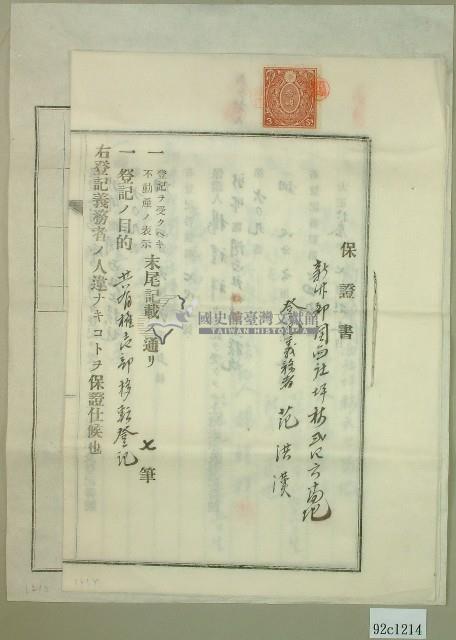 保證書
新竹郡関西庄坪林
登記義務者 范洪漢
一 登記ヲ受クヘキ不動産ノ表示 末尾記載ノ通リ 七筆
一 登記ノ目的 共有権全部移転登記
右登記義務者ノ人違ナキコトヲ保證仕候也
國史館臺灣文獻館
TAIWAN HISTORICA
92c1214